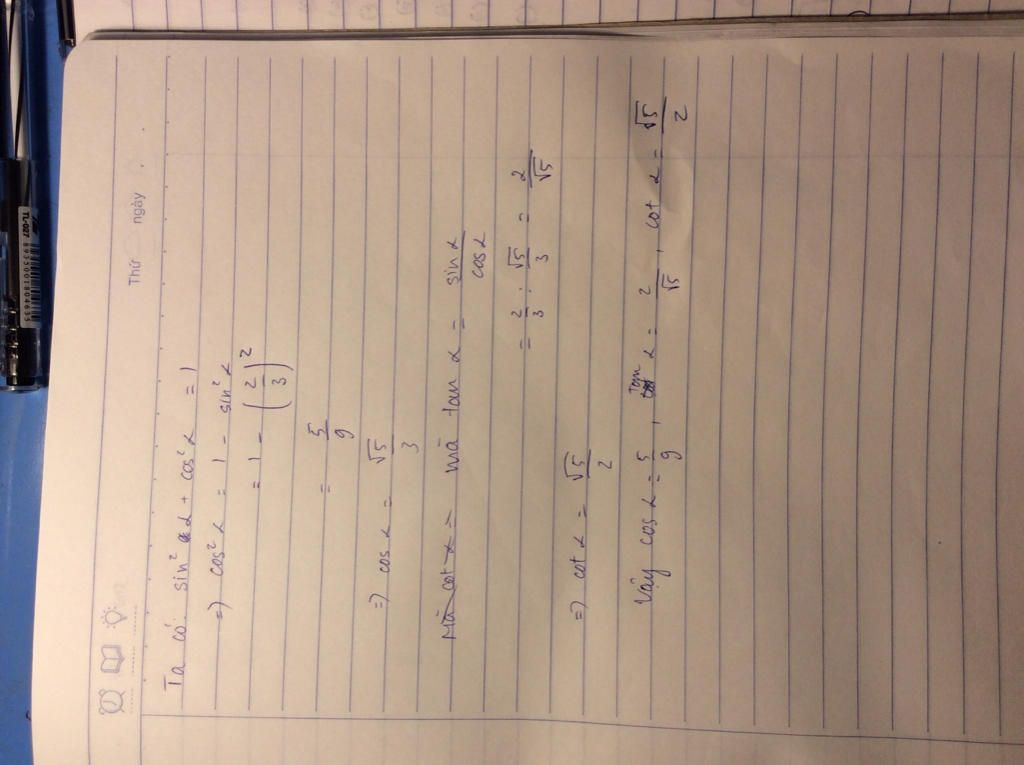 Thứ ngày
Ta có: sin² α + cos² α = 1
=) cos² α = 1 - sin² α
= 1 - (2/3)²
= 5/9
=) cos α = √5/3
Mà cot α = mà tan α = sin α/cos α
= 2/3 : √5/3 = 2/√5
=) cot α = √5/2
Vậy cos α = 5/9, tan α = 2/√5, cot α = √5/2
TL-027
8935001804635